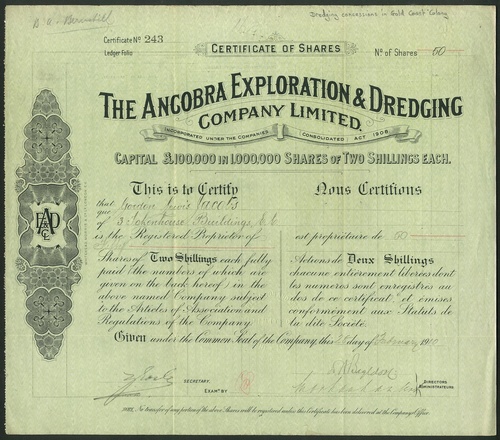 Dredging concessions in Gold Coast Colony
Certificate No 243
CERTIFICATE OF SHARES
Ledger Folio
No of Shares 60
THE ANCOBRA EXPLORATION & DREDGING
COMPANY LIMITED.
INCORPORATED UNDER THE COMPANIES (CONSOLIDATED) ACT 1908
CAPITAL £100,000 IN 1,000,000 SHARES OF TWO SHILLINGS EACH.
This is to Certify
that
que
of 3 Buildings E.C
is the Registered Proprietor of
Shares of Two Shillings each fully
paid (the numbers of which are
given on the back hereof) in the
above named Company subject
to the Articles of Association and
Regulations of the Company.
Nous Certifions
est propriétaire de 60
Actions de Deux Shillings
chacune entièrement libérées dont
les numéros sont enregistrés au
dos de ce certificat, et émises
conformément aux Statuts de
la dite Société.
Given under the Common Seal of the Company, this day of February 1910
SECRETARY.
EXAMD BY
DIRECTORS
ADMINISTRATEURS
NOTE. No transfer of any portion of the above Shares will be registered unless this Certificate has been delivered at the Company's Office